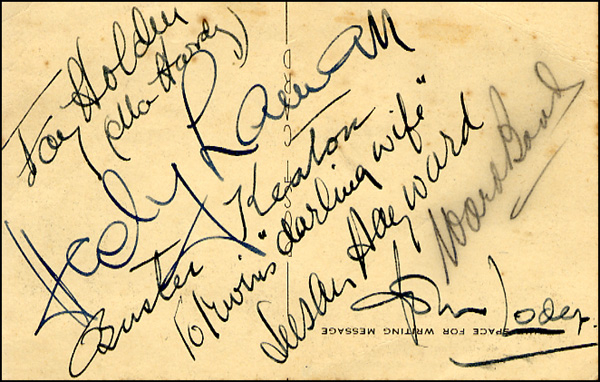 Fay Holden
(Ma Hardy)
Hedy Lamarr
Buster Keaton
To Irwin's "darling wife"
Susan Hayward
Ward Bond
John Loder
SPACE FOR WRITING MESSAGE